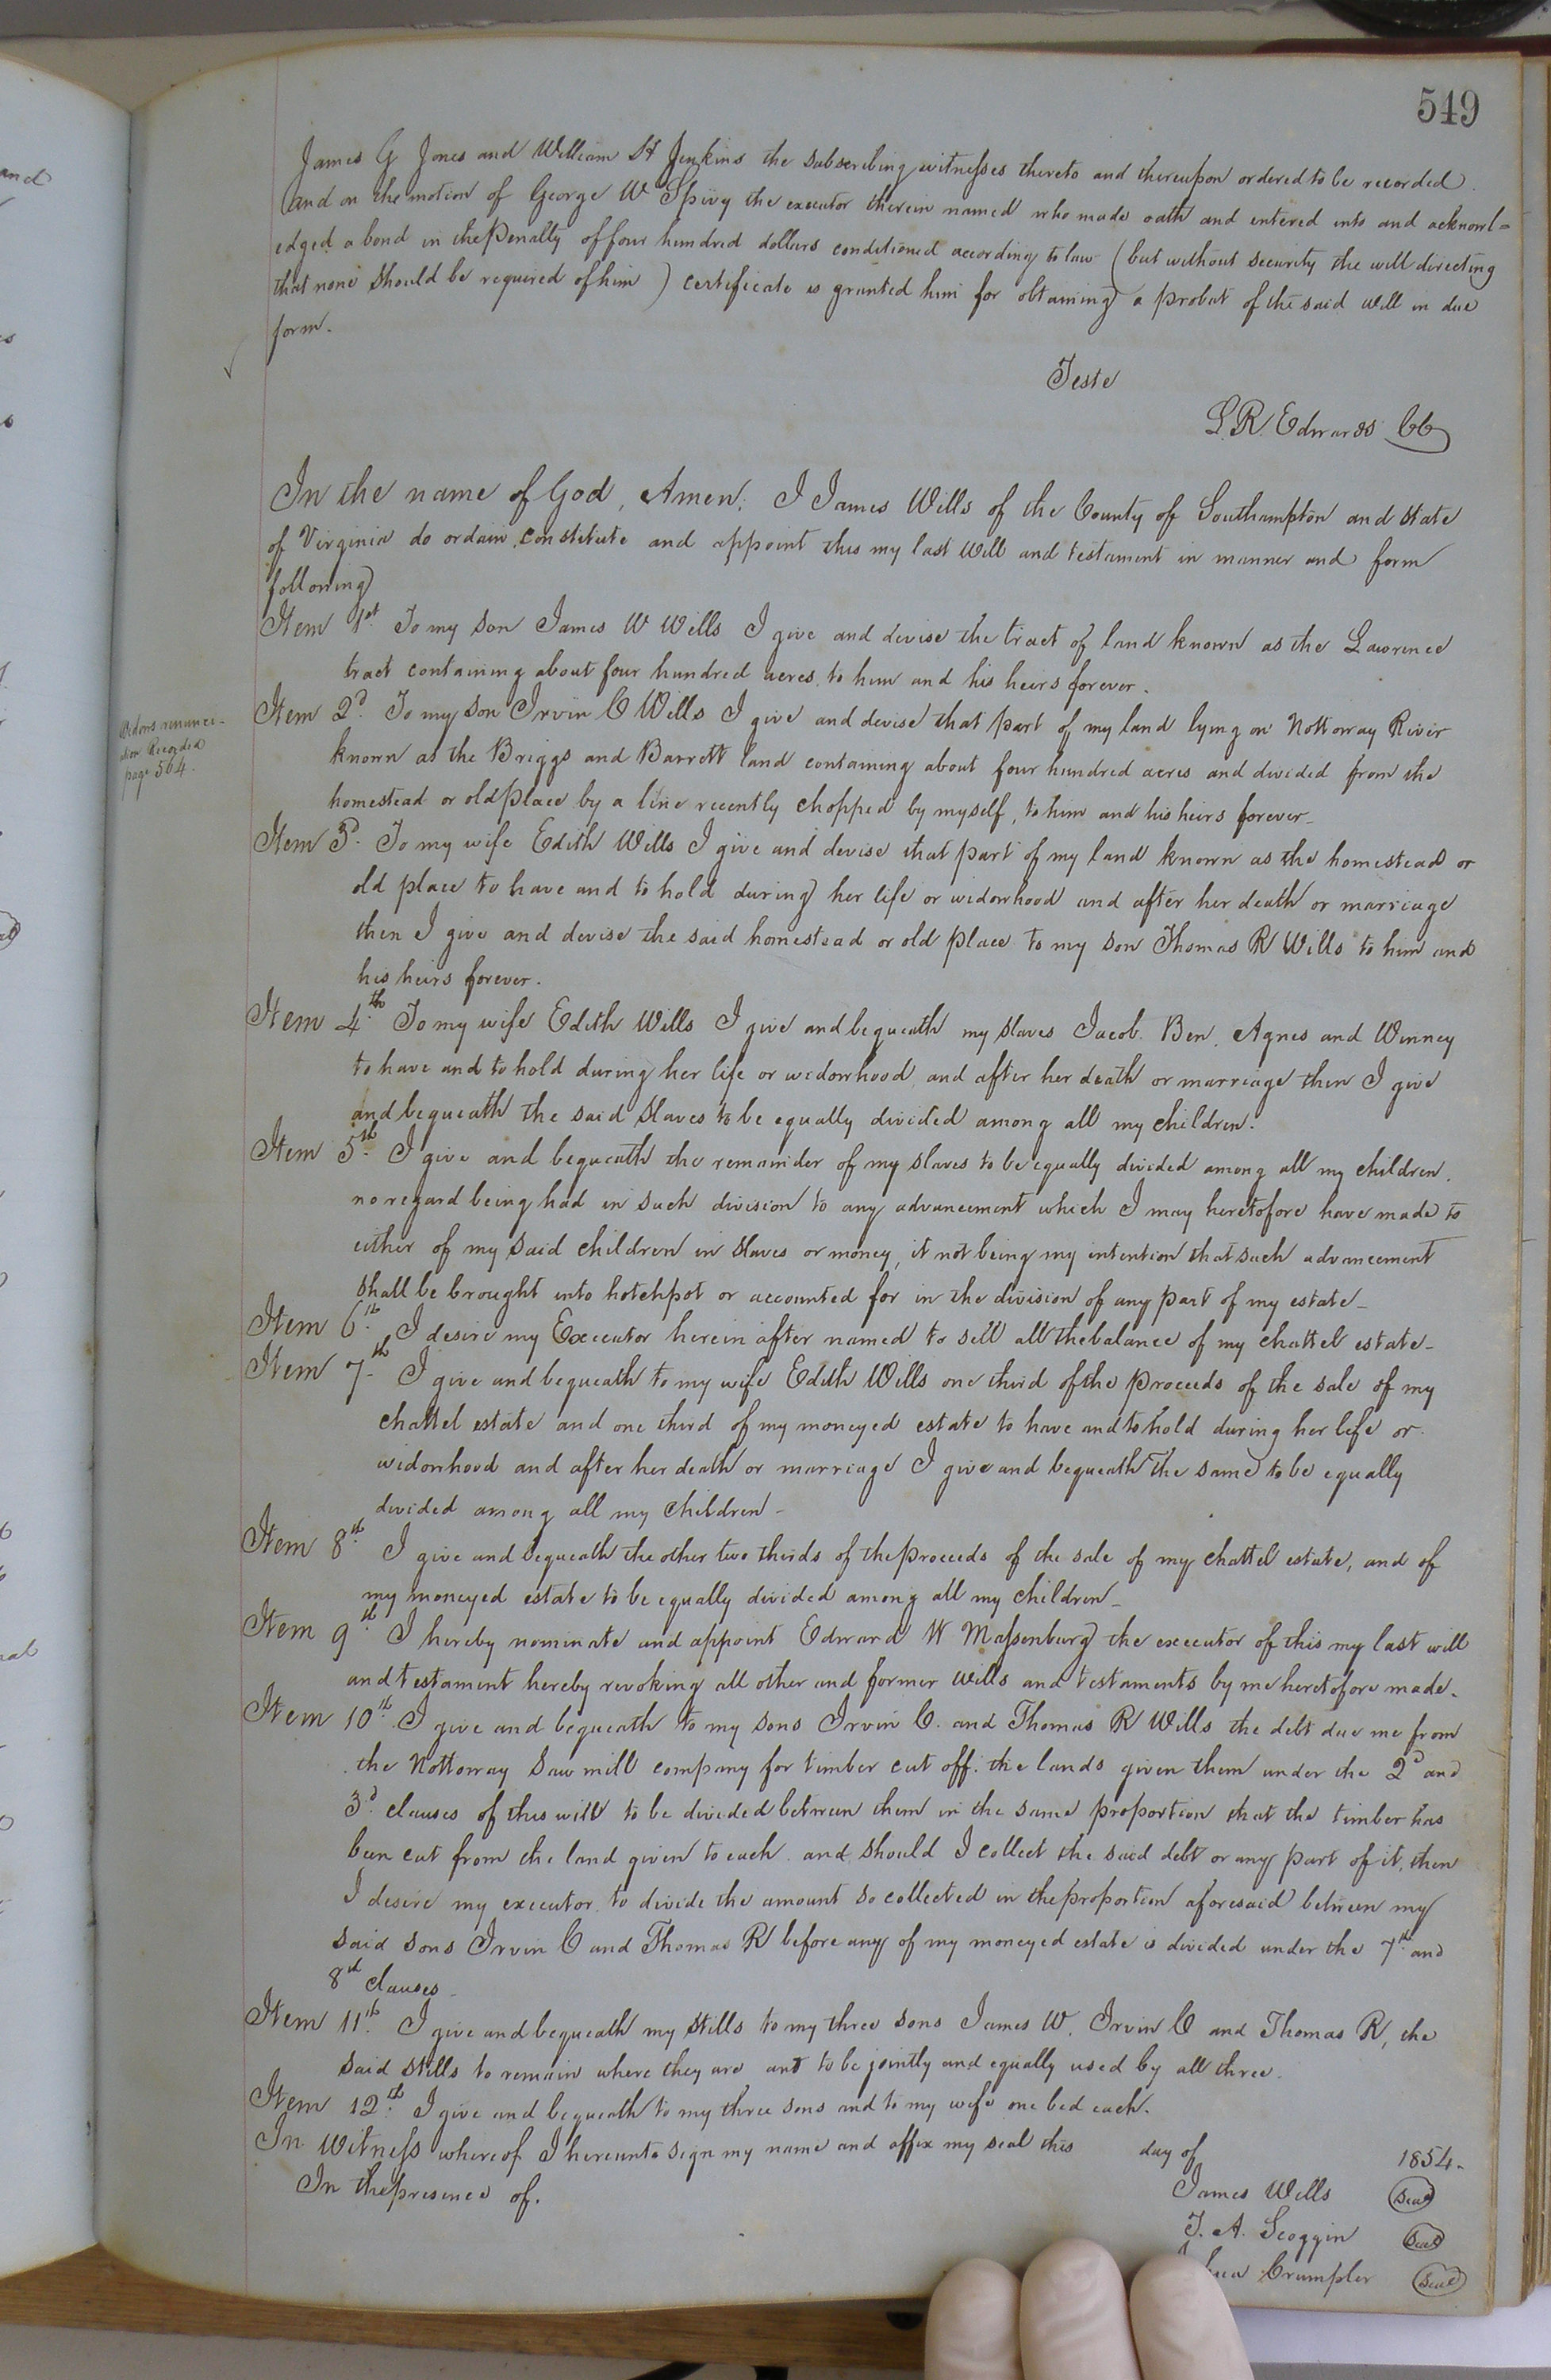 549
James G Jones and William H Jenkins the subscribing witnesses thereto and thereupon ordered to be recorded.
And on the motion of George W Spivy the executor therein named who made oath and entered into and acknowl=
edged a bond in the Penalty of four hundred dollars conditioned according to law (but without security the will directing
that none should be required of him) certificate is granted him for obtaining a probat of the said will in due
form.
Teste
L.R. Edwards CC
In the name of God, Amen. I James Wills of the County of Southampton and State
of Virginia do ordain, constitute and appoint this my last Will and testament in manner and form
following
Item 1st. To my son James W Wills I give and devise the tract of land known as the Lawrence
tract containing about four hundred acres, to him and his heirs forever.
Item 2d. To my son Irvin C Wills I give and devise that part of my land lying on Nottoway River
known as the Briggs and Barrett land containing about four hundred acres and divided from the
homestead or old place by a line recently chopped by myself, to him and his heirs forever_
Widows renunci-
ation Recorded
page 564.
Item 3d. To my wife Edith Wills I give and devise that part of my land known as the homestead or
old place to have and to hold during her life or widowhood and after her death or marriage
then I give and devise the said homestead or old place to my son Thomas R Wills to him and
his heirs forever.
Item 4th. To my wife Edith Wills I give and bequeath my slaves Jacob. Ben, Agnes and Winney
to have and to hold during her life or widowhood, and after her death or marriage then I give
and bequeath the said slaves to be equally divided among all my children.
Item 5th. I give and bequeath the remainder of my slaves to be equally divided among all my children.
no regard being had in such division to any advancement which I may heretofore have made to
either of my said children in slaves or money, it not being my intention that such advancement
shall be brought into hotchpot or accounted for in the division of any part of my estate_
Item 6th. I desire my Executor herein after named to sell all the balance of my chattel estate_
Item 7th. I give and bequeath to my wife Edith Wills one third of the proceeds of the sale of my
chattel estate and one third of my moneyed estate to have and to hold during her life or
widowhood and after her death or marriage I give and bequeath the same to be equally
divided among all my children_
Item 8th. I give and bequeath the other two thirds of the proceeds of the sale of my chattel estate, and of
my moneyed estate to be equally divided among all my children_
Item 9th. I hereby nominate and appoint Edward W Massenburg the executor of this my last will
and testament hereby revoking all other and former wills and testaments by me heretofore made.
Item 10th. I give and bequeath to my sons Irvin C. and Thomas R Wills the debt due me from
the Nottoway Saw mill company for timber cut off the lands given them under the 2d and
3d. clauses of this will to be divided between them in the same proportion that the timber has
been cut from the land given to each. and should I collect the said debt or any part of it, then
I desire my executor to divide the amount so collected in the proportion aforesaid between my
said sons Irvin C and Thomas R before any of my moneyed estate is divided under the 7th and
8th clauses_
Item 11th. I give and bequeath my stills to my three sons James W, Irvin C and Thomas R, the
said stills to remain where they are and to be jointly and equally used by all three.
Item 12th. I give and bequeath to my three sons and to my wife one bed each.
In Witness whereof I hereunto sign my name and affix my seal this day of 1854.
In the presence of. James Wills Seal
J. A. Scoggin Seal
Crumpler Seal